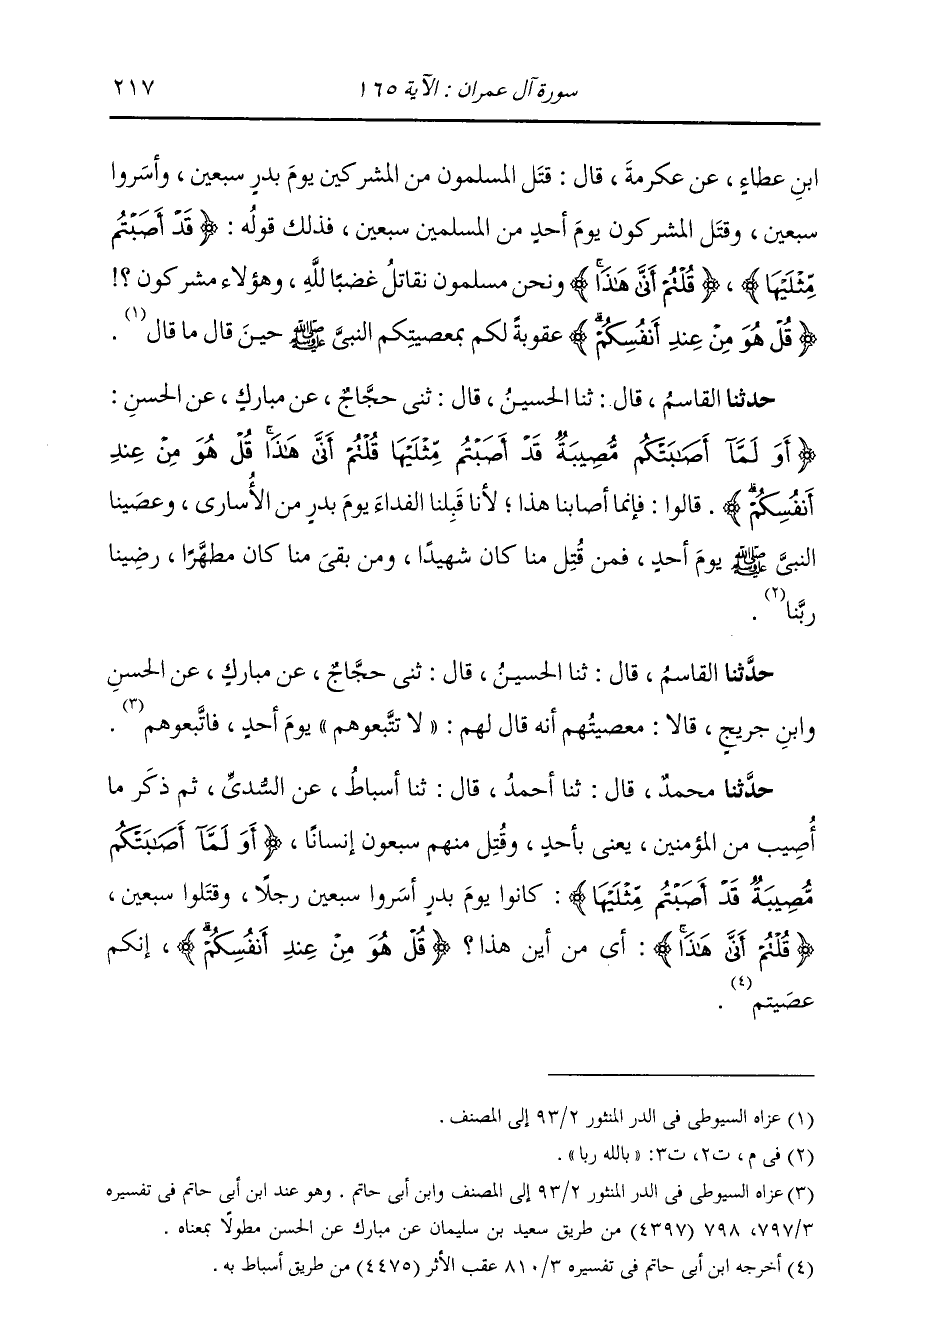 سورة آل عمران : الآية ١٦٥ ٢١٧
ابنِ عطاءٍ ، عن عكرمةَ ، قال : قتَل المسلمون من المشركين يومَ بدرٍ سبعين ، وأسَروا
سبعين ، وقتَل المشركون يومَ أحدٍ من المسلمين سبعين ، فذلك قولُه : ﴿ قَدْ أَصَبْتُم
مِّثْلَيْهَا ﴾ ، ﴿ قُلْتُمْ أَنَّىٰ هَٰذَاۖ ﴾ ونحن مسلمون نقاتلُ غضبًا للَّهِ ، وهؤلاء مشركون ؟!
﴿ قُلْ هُوَ مِنْ عِندِ أَنفُسِكُمْۗ ﴾ عقوبةً لكم بمعصيتِكم النبيَّ ﷺ حينَ قال ما قال(١) .
حدثنا القاسمُ ، قال : ثنا الحسينُ ، قال : ثنى حجَّاجٌ ، عن مباركٍ ، عن الحسنِ :
﴿ أَوَ لَمَّآ أَصَٰبَتْكُم مُّصِيبَةٌ قَدْ أَصَبْتُم مِّثْلَيْهَا قُلْتُمْ أَنَّىٰ هَٰذَاۖ قُلْ هُوَ مِنْ عِندِ
أَنفُسِكُمْۗ ﴾ . قالوا : فإنما أصابنا هذا ؛ لأنا قَبِلنا الفداءَ يومَ بدرٍ من الأُسارى ، وعصَينا
النبىَّ ﷺ يومَ أحدٍ ، فمن قُتِل منا كان شهيدًا ، ومن بقىَ منا كان مطهَّرًا ، رضِينا
ربَّنا(٢) .
حدَّثنا القاسمُ ، قال : ثنا الحسينُ ، قال : ثنى حجَّاجٌ ، عن مباركٍ ، عن الحسنِ
وابنِ جريجٍ ، قالا : معصيتُهم أنه قال لهم : « لا تتَّبعوهم » يومَ أحدٍ ، فاتَّبعوهم(٣) .
حدَّثنا محمدٌ ، قال : ثنا أحمدُ ، قال : ثنا أسباطُ ، عن السُّدىِّ ، ثم ذكَر ما
أُصِيب من المؤمنين ، يعنى بأحدٍ ، وقُتِل منهم سبعون إنسانًا ، ﴿ أَوَ لَمَّآ أَصَٰبَتْكُم
مُّصِيبَةٌ قَدْ أَصَبْتُم مِّثْلَيْهَا ﴾ : كانوا يومَ بدرٍ أسَروا سبعين رجلًا ، وقتَلوا سبعين ،
﴿ قُلْتُمْ أَنَّىٰ هَٰذَاۖ ﴾ : أى من أين هذا ؟ ﴿ قُلْ هُوَ مِنْ عِندِ أَنفُسِكُمْۗ ﴾ ، إنكم
عصَيتم(٤) .
(١) عزاه السيوطى فى الدر المنثور ٩٣/٢ إلى المصنف .
(٢) فى م ، ت٢، ت٣: « بالله ربا» .
(٣) عزاه السيوطى فى الدر المنثور ٩٣/٢ إلى المصنف وابن أبى حاتم . وهو عند ابن أبى حاتم فى تفسيره
٧٩٧/٣، ٧٩٨ (٤٣٩٧) من طريق سعيد بن سليمان عن مبارك عن الحسن مطولًا بمعناه .
(٤) أخرجه ابن أبى حاتم فى تفسيره ٨١٠/٣ عقب الأثر (٤٤٧٥) من طريق أسباط به .